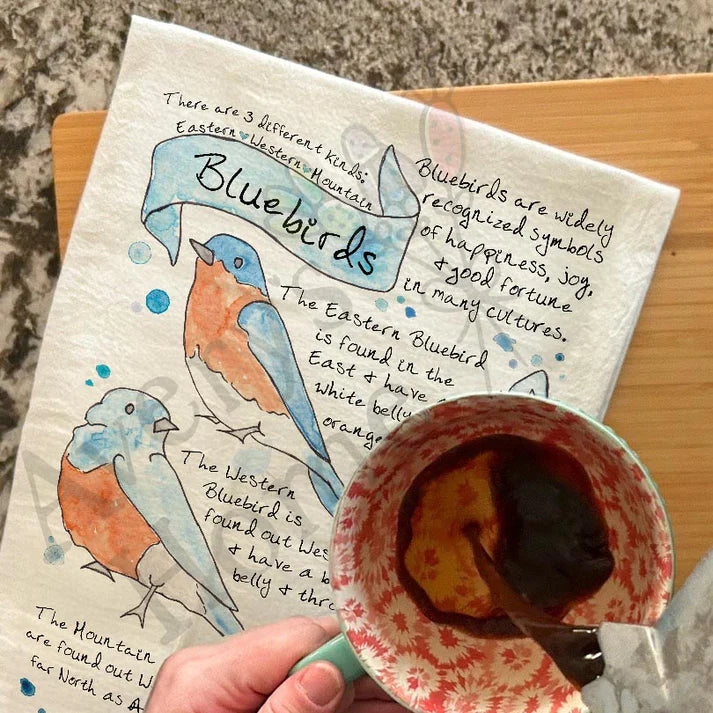 There are 3 different kinds:
Eastern Western Mountain
Bluebirds
Bluebirds are widely
recognized symbols
of happiness, joy,
& good fortune
in many cultures.
The Eastern Bluebird
is found in the
East & have a
white belly
orange
The Western
Bluebird is
found out Wes
& have a b
belly & thr
The Mountain
are found out W
far North as A